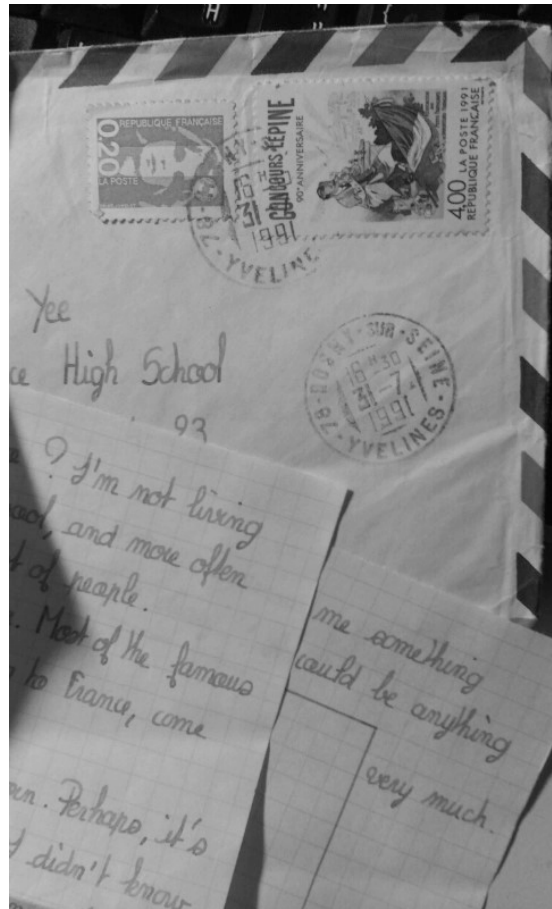 REPUBLIQUE FRANCAISE
0,20
LA POSTE
CONCOURS LEPINE
90e ANNIVERSAIRE
4,00 LA POSTE 1991
REPUBLIQUE FRANÇAISE
1991
78 - YVELINES
ROSNY-SUR-SEINE
16 H 30
31 -7
1991
78 - YVELINES
Yee
High School
93
? I'm not living
and more often
of people.
Most of the famous
to France, come
Perhaps, it's
I didn't know
me something
could be anything
very much.